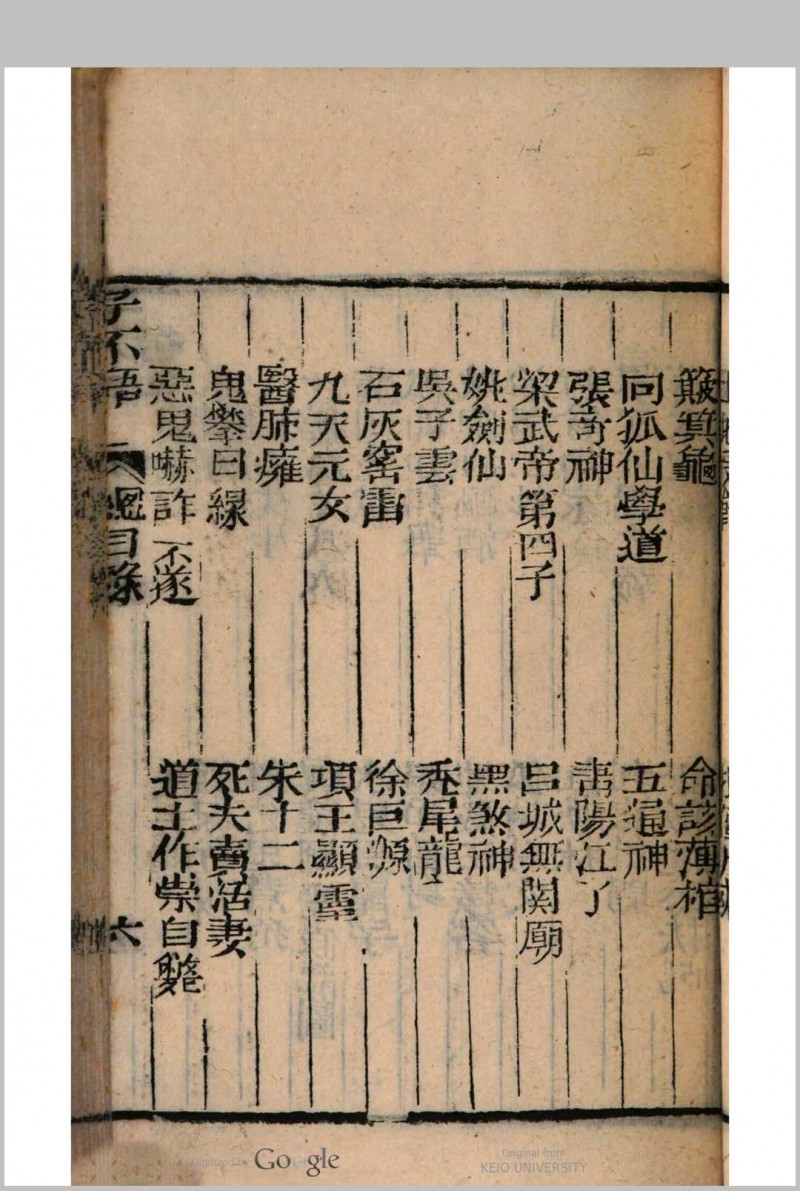 簸箕龜　命該薄棺
同狐仙學道　五通神
張奇神　青陽江了
梁武帝第四子　吕城無関廟
姚劍仙　黑煞神
吳子雲　禿尾龍
石灰窑雷　徐巨源
九天元女　項王顯靈
醫肺癰　朱十二
鬼攀日緣　死夫賣活妻
惡鬼嚇詐不遂　道士作祟自斃
子不語　目錄　六
Digitized by Google
Original from
KEIO UNIVERSITY